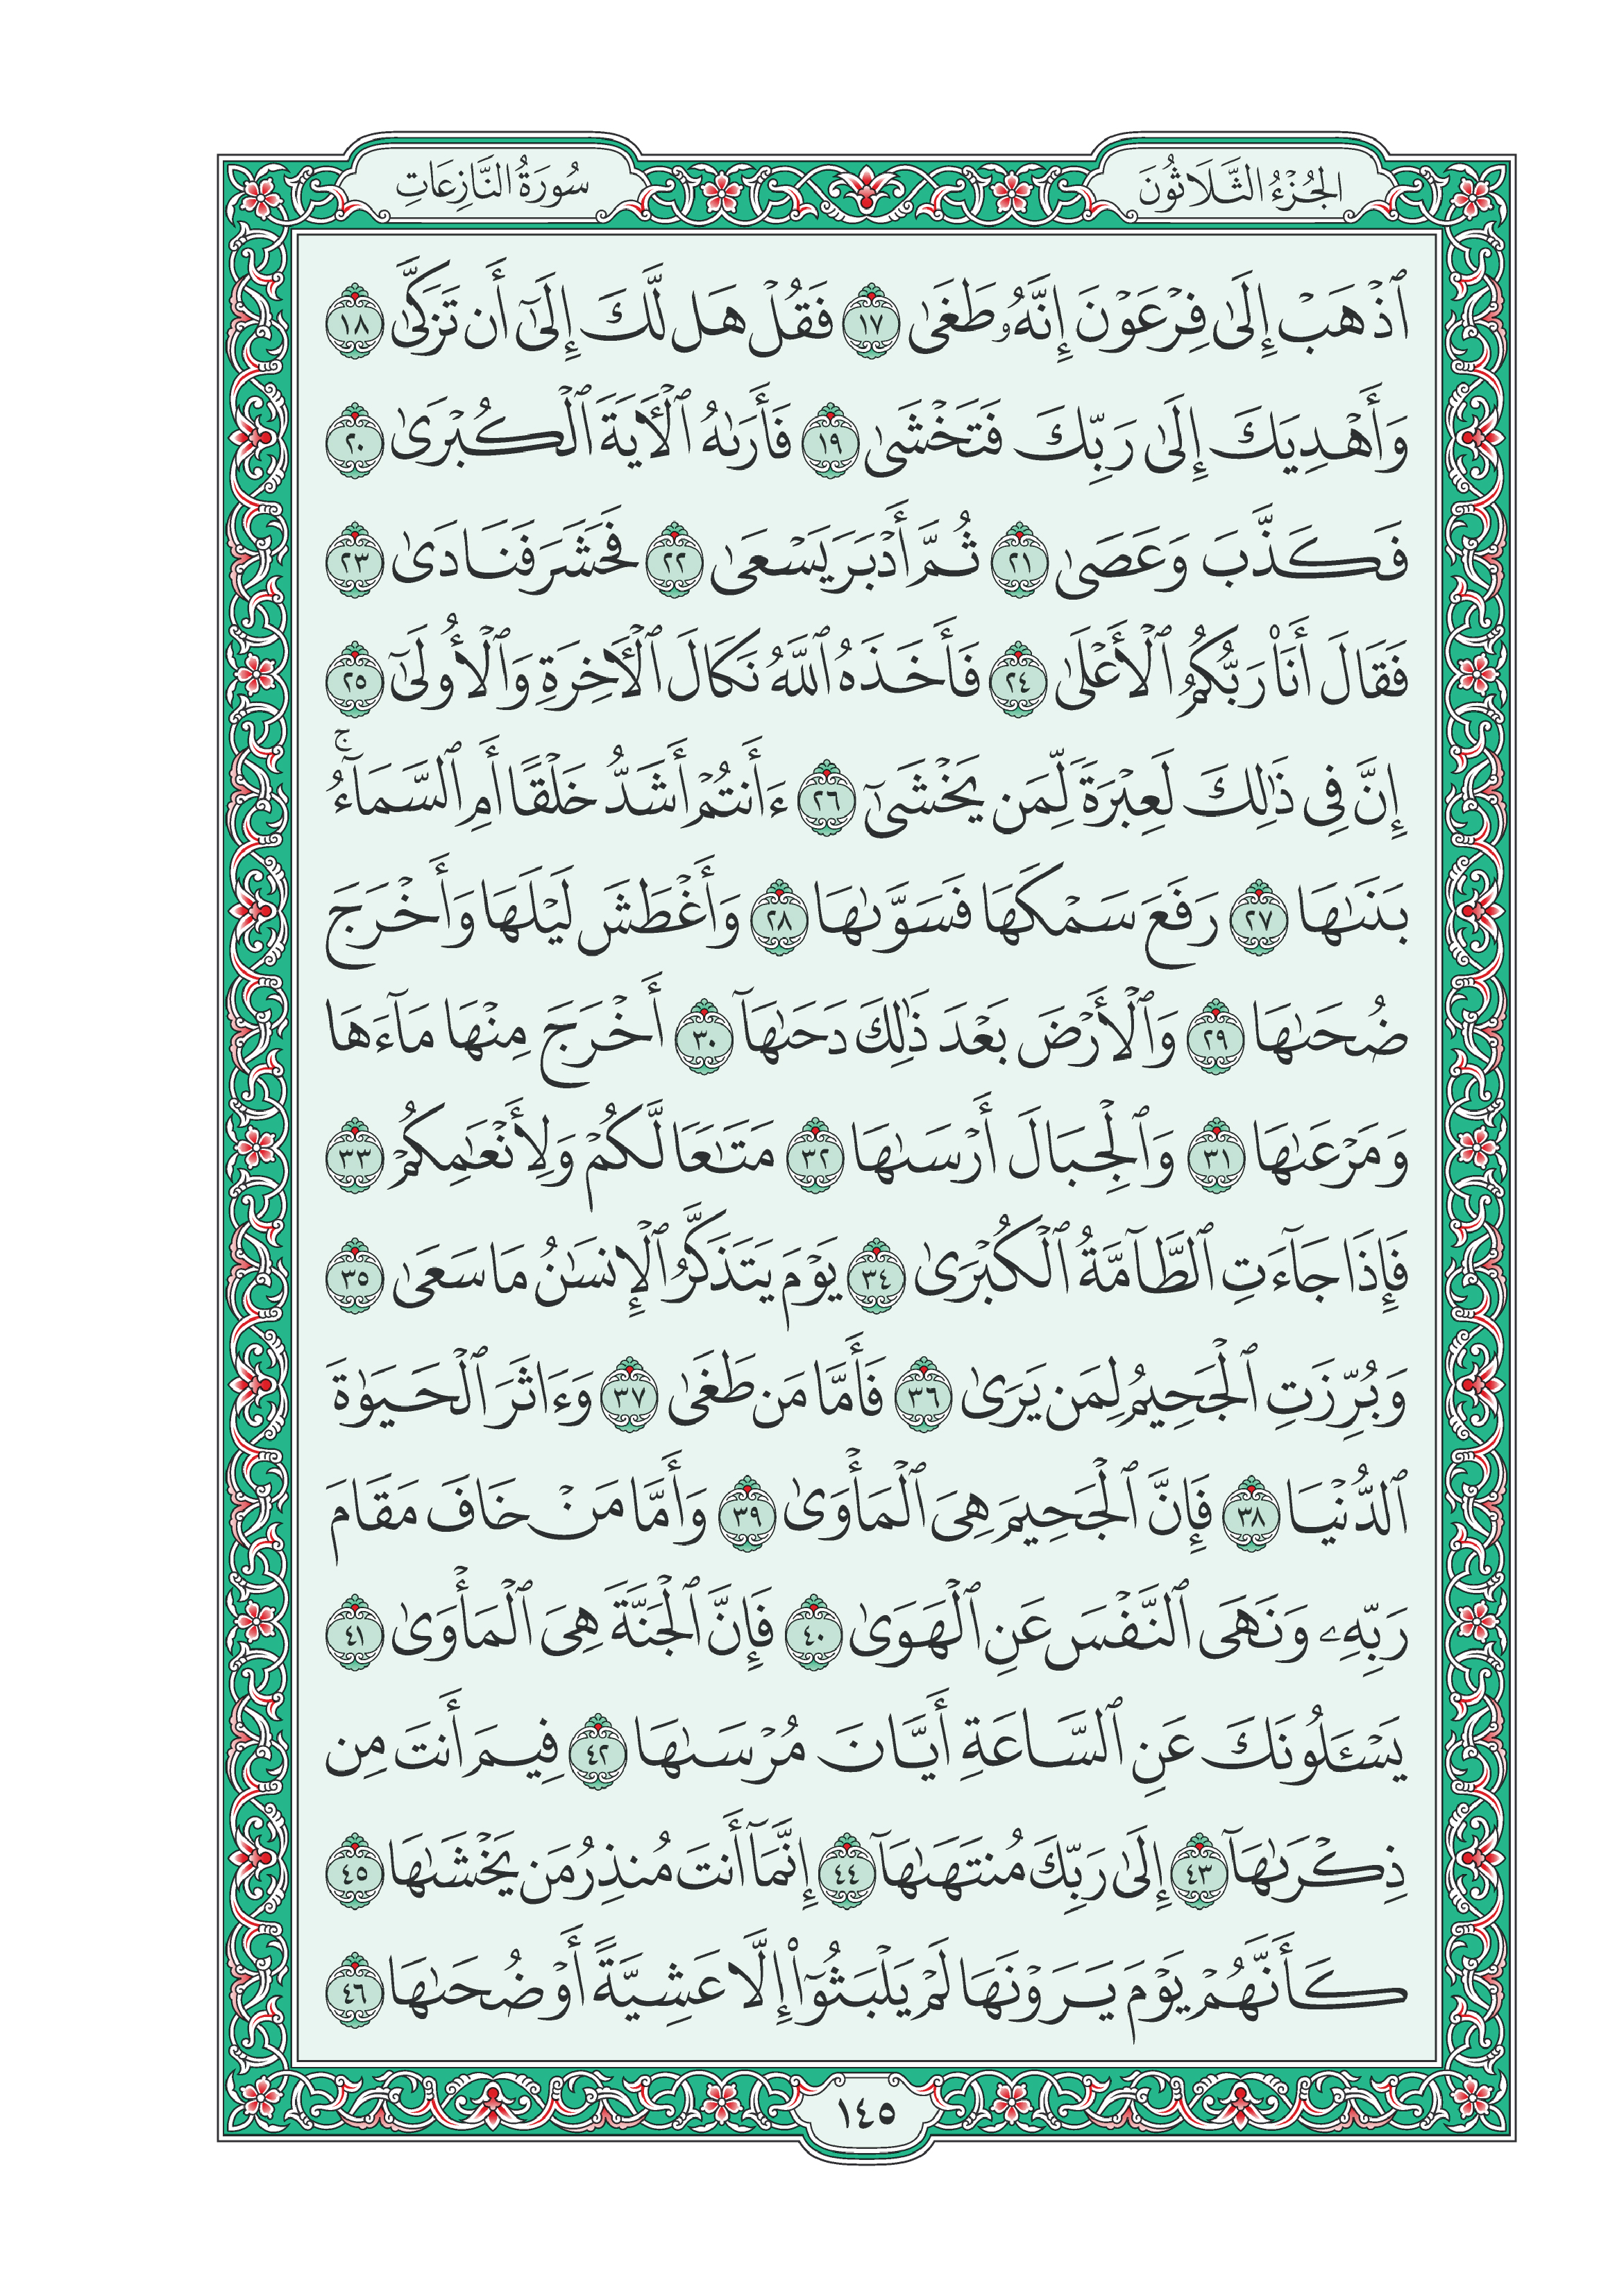 الجُزْءُ الثَّلَاثُونَ
سُورَةُ النَّازِعَاتِ
ٱذۡهَبۡ إِلَىٰ فِرۡعَوۡنَ إِنَّهُۥ طَغَىٰ ١٧ فَقُلۡ هَل لَّكَ إِلَىٰٓ أَن تَزَكَّىٰ ١٨
وَأَهۡدِيَكَ إِلَىٰ رَبِّكَ فَتَخۡشَىٰ ١٩ فَأَرَىٰهُ ٱلۡأٓيَةَ ٱلۡكُبۡرَىٰ ٢٠
فَكَذَّبَ وَعَصَىٰ ٢١ ثُمَّ أَدۡبَرَ يَسۡعَىٰ ٢٢ فَحَشَرَ فَنَادَىٰ ٢٣
فَقَالَ أَنَا۠ رَبُّكُمُ ٱلۡأَعۡلَىٰ ٢٤ فَأَخَذَهُ ٱللَّهُ نَكَالَ ٱلۡأٓخِرَةِ وَٱلۡأُولَىٰٓ ٢٥
إِنَّ فِي ذَٰلِكَ لَعِبۡرَةٗ لِّمَن يَخۡشَىٰٓ ٢٦ ءَأَنتُمۡ أَشَدُّ خَلۡقًا أَمِ ٱلسَّمَآءُۚ
بَنَىٰهَا ٢٧ رَفَعَ سَمۡكَهَا فَسَوَّىٰهَا ٢٨ وَأَغۡطَشَ لَيۡلَهَا وَأَخۡرَجَ
ضُحَىٰهَا ٢٩ وَٱلۡأَرۡضَ بَعۡدَ ذَٰلِكَ دَحَىٰهَآ ٣٠ أَخۡرَجَ مِنۡهَا مَآءَهَا
وَمَرۡعَىٰهَا ٣١ وَٱلۡجِبَالَ أَرۡسَىٰهَا ٣٢ مَتَٰعٗا لَّكُمۡ وَلِأَنۡعَٰمِكُمۡ ٣٣
فَإِذَا جَآءَتِ ٱلطَّآمَّةُ ٱلۡكُبۡرَىٰ ٣٤ يَوۡمَ يَتَذَكَّرُ ٱلۡإِنسَٰنُ مَا سَعَىٰ ٣٥
وَبُرِّزَتِ ٱلۡجَحِيمُ لِمَن يَرَىٰ ٣٦ فَأَمَّا مَن طَغَىٰ ٣٧ وَءَاثَرَ ٱلۡحَيَوٰةَ
ٱلدُّنۡيَا ٣٨ فَإِنَّ ٱلۡجَحِيمَ هِيَ ٱلۡمَأۡوَىٰ ٣٩ وَأَمَّا مَنۡ خَافَ مَقَامَ
رَبِّهِۦ وَنَهَى ٱلنَّفۡسَ عَنِ ٱلۡهَوَىٰ ٤٠ فَإِنَّ ٱلۡجَنَّةَ هِيَ ٱلۡمَأۡوَىٰ ٤١
يَسۡـَٔلُونَكَ عَنِ ٱلسَّاعَةِ أَيَّانَ مُرۡسَىٰهَا ٤٢ فِيمَ أَنتَ مِن
ذِكۡرَىٰهَآ ٤٣ إِلَىٰ رَبِّكَ مُنتَهَىٰهَآ ٤٤ إِنَّمَآ أَنتَ مُنذِرُ مَن يَخۡشَىٰهَا ٤٥
كَأَنَّهُمۡ يَوۡمَ يَرَوۡنَهَا لَمۡ يَلۡبَثُوٓاْ إِلَّا عَشِيَّةً أَوۡ ضُحَىٰهَا ٤٦
١٤٥